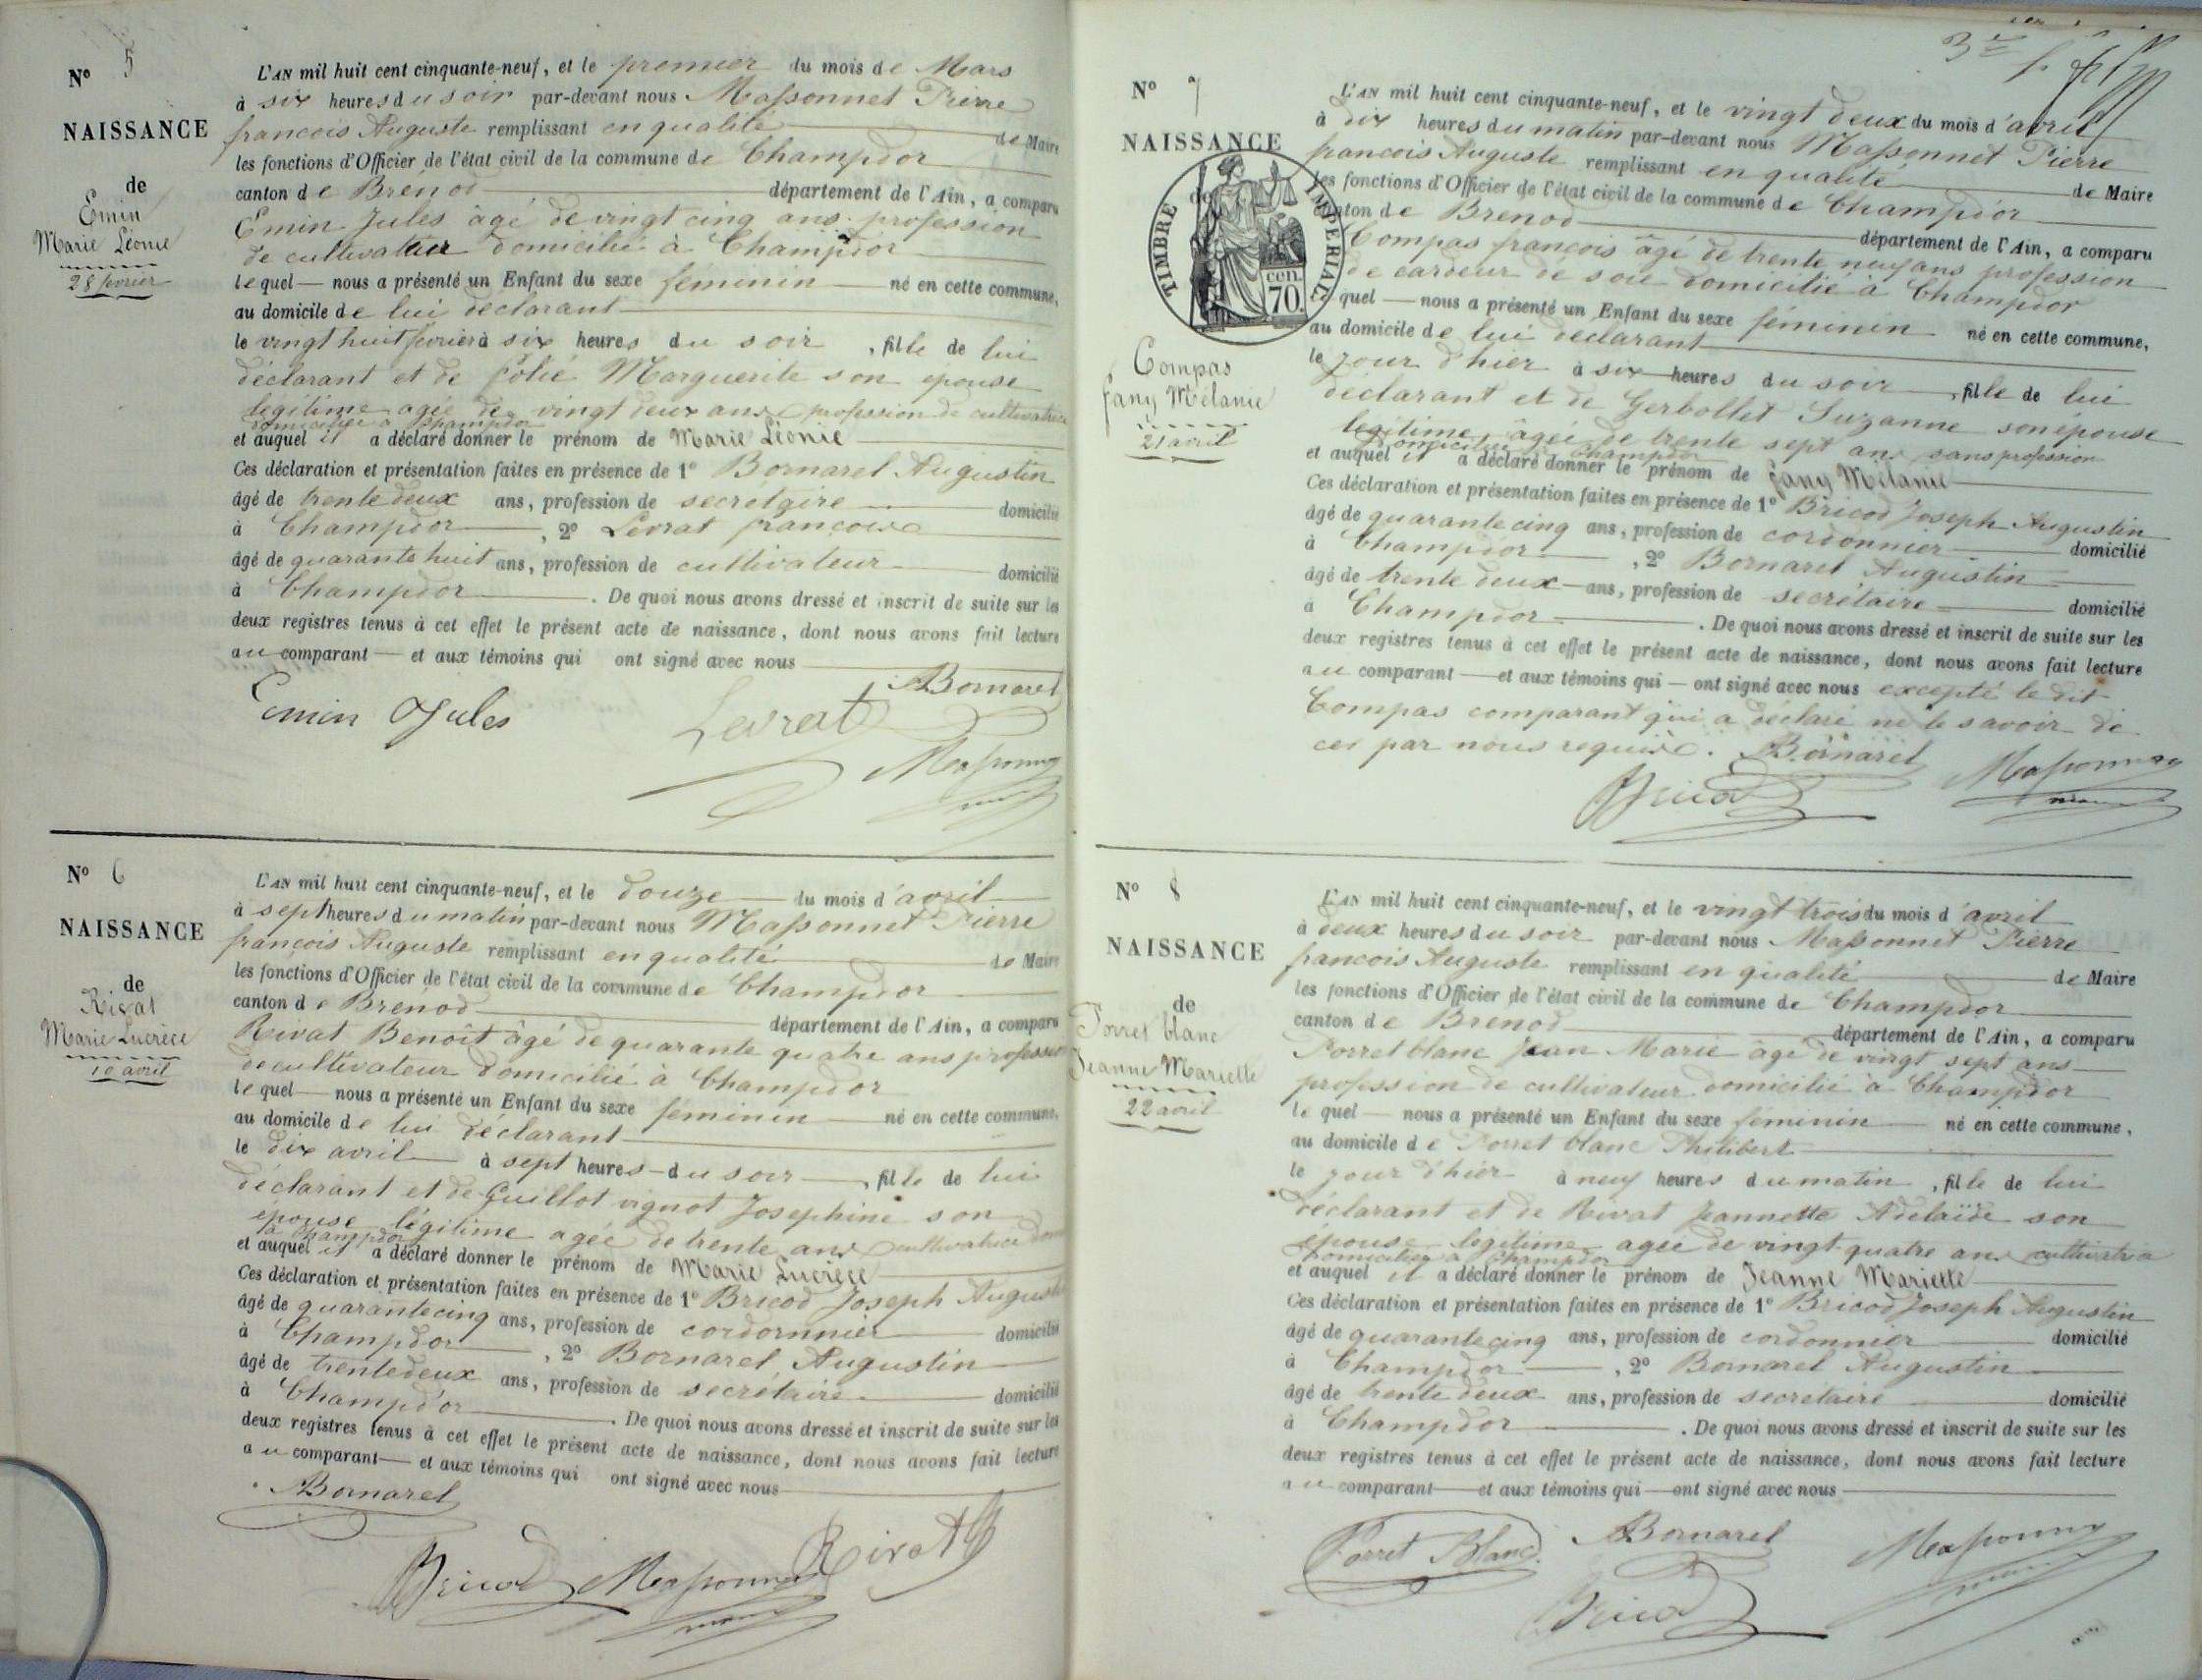 N° 5
NAISSANCE
de
Emin
Marie Léonie
28 fevrier
L'AN mil huit cent cinquante-neuf, et le premier du mois de Mars
à six heures du soir par-devant nous Massonnet Pierre
francois Auguste remplissant en qualité de Maire
les fonctions d'Officier de l'état civil de la commune de Champdor
canton de Brénod département de l'Ain, a comparu
Emin Jules âgé de vingt cinq ans profession
de cultivateur domicilié à Champdor
lequel nous a présenté un Enfant du sexe féminin né en cette commune,
au domicile de lui déclarant
le vingt huit fevrier à six heures du soir, fille de lui
déclarant et de Colié Marguerite son epouse
legitime agée de vingt deux ans profession de cultivatrice
domiciliée à Champdor
et auquel il a déclaré donner le prénom de Marie Léonie
Ces déclaration et présentation faites en présence de 1° Bornarel Augustin
âgé de trente deux ans, profession de secrétaire domicilié
à Champdor, 2° Levrat francois
âgé de quarante huit ans, profession de cultivateur domicilié
à Champdor. De quoi nous avons dressé et inscrit de suite sur les
deux registres tenus à cet effet le présent acte de naissance, dont nous avons fait lecture
au comparant et aux témoins qui ont signé avec nous
Bornarel
Emin Jules Levrat
Massonnet
maire
N° 6
NAISSANCE
de
Rivat
Marie Lucrèce
10 avril
L'AN mil huit cent cinquante-neuf, et le douze du mois d'avril
à sept heures du matin par-devant nous Massonnet Pierre
françois Auguste remplissant en qualité de Maire
les fonctions d'Officier de l'état civil de la commune de Champdor
canton de Brenod département de l'Ain, a comparu
Rivat Benoît âgé de quarante quatre ans profession
de cultivateur domicilié à Champdor
lequel nous a présenté un Enfant du sexe féminin né en cette commune,
au domicile de lui déclarant
le dix avril à sept heures du soir, fille de lui
déclarant et de Guillot vignot Josephine son
epouse légitime agée de trente ans cultivatrice
à Champdor
et auquel il a déclaré donner le prénom de Marie Lucrèce
Ces déclaration et présentation faites en présence de 1° Bricod Joseph Augustin
âgé de quarante cinq ans, profession de cordonnier domicilié
à Champdor, 2° Bornarel Augustin
âgé de trente deux ans, profession de secrétaire domicilié
à Champd'or. De quoi nous avons dressé et inscrit de suite sur les
deux registres tenus à cet effet le présent acte de naissance, dont nous avons fait lecture
au comparant et aux témoins qui ont signé avec nous
Bornarel
Bricod Massonnet Rivat
maire
N° 7
NAISSANCE
de
TIMBRE IMPERIAL
cen. 70.
Compas
fany Mélanie
21 avril
L'AN mil huit cent cinquante-neuf, et le vingt deux du mois d'avril
à dix heures du matin par-devant nous Massonnet Pierre
francois Auguste remplissant en qualité de Maire
les fonctions d'Officier de l'état civil de la commune de Champdor
canton de Brenod département de l'Ain, a comparu
Compas francois âgé de trente neuf ans profession
de cardeur de soie domicilié à Champdor
lequel nous a présenté un Enfant du sexe féminin né en cette commune,
au domicile de lui déclarant
le jour d'hier à six heures du soir, fille de lui
déclarant et de Gerbollet Suzanne son épouse
legitime, âgée de trente sept ans sans profession
domiciliée à Champdor
et auquel il a déclaré donner le prénom de fany Mélanie
Ces déclaration et présentation faites en présence de 1° Bricod Joseph Augustin
âgé de quarante cinq ans, profession de cordonnier domicilié
à Champdor, 2° Bornarel Augustin
âgé de trente deux ans, profession de secrétaire domicilié
à Champdor. De quoi nous avons dressé et inscrit de suite sur les
deux registres tenus à cet effet le présent acte de naissance, dont nous avons fait lecture
au comparant et aux témoins qui ont signé avec nous excepté le dit
Compas comparant qui a déclaré ne le savoir de
ce par nous requise. Bornarel Massonnet
Bricod maire
N° 8
NAISSANCE
de
Porret blanc
Jeanne Mariette
22 avril
L'AN mil huit cent cinquante-neuf, et le vingt trois du mois d'avril
à deux heures du soir par-devant nous Massonnet Pierre
francois Auguste remplissant en qualité de Maire
les fonctions d'Officier de l'état civil de la commune de Champdor
canton de Brenod département de l'Ain, a comparu
Porret blanc Jean Marie âgé de vingt sept ans
profession de cultivateur domicilié à Champdor
lequel nous a présenté un Enfant du sexe féminin né en cette commune,
au domicile de Porret blanc Philibert
le jour d'hier à neuf heures du matin, fille de lui
déclarant et de Rivat Jeannette Adelaïde son
épouse légitime agée de vingt quatre ans cultivatrice
domiciliée à Champdor
et auquel il a déclaré donner le prénom de Jeanne Mariette
Ces déclaration et présentation faites en présence de 1° Bricod Joseph Augustin
âgé de quarante cinq ans, profession de cordonnier domicilié
à Champdor, 2° Bornarel Augustin
âgé de trente deux ans, profession de secrétaire domicilié
à Champdor. De quoi nous avons dressé et inscrit de suite sur les
deux registres tenus à cet effet le présent acte de naissance, dont nous avons fait lecture
au comparant et aux témoins qui ont signé avec nous
Porret Blanc Bornarel Massonnet
Bricod maire